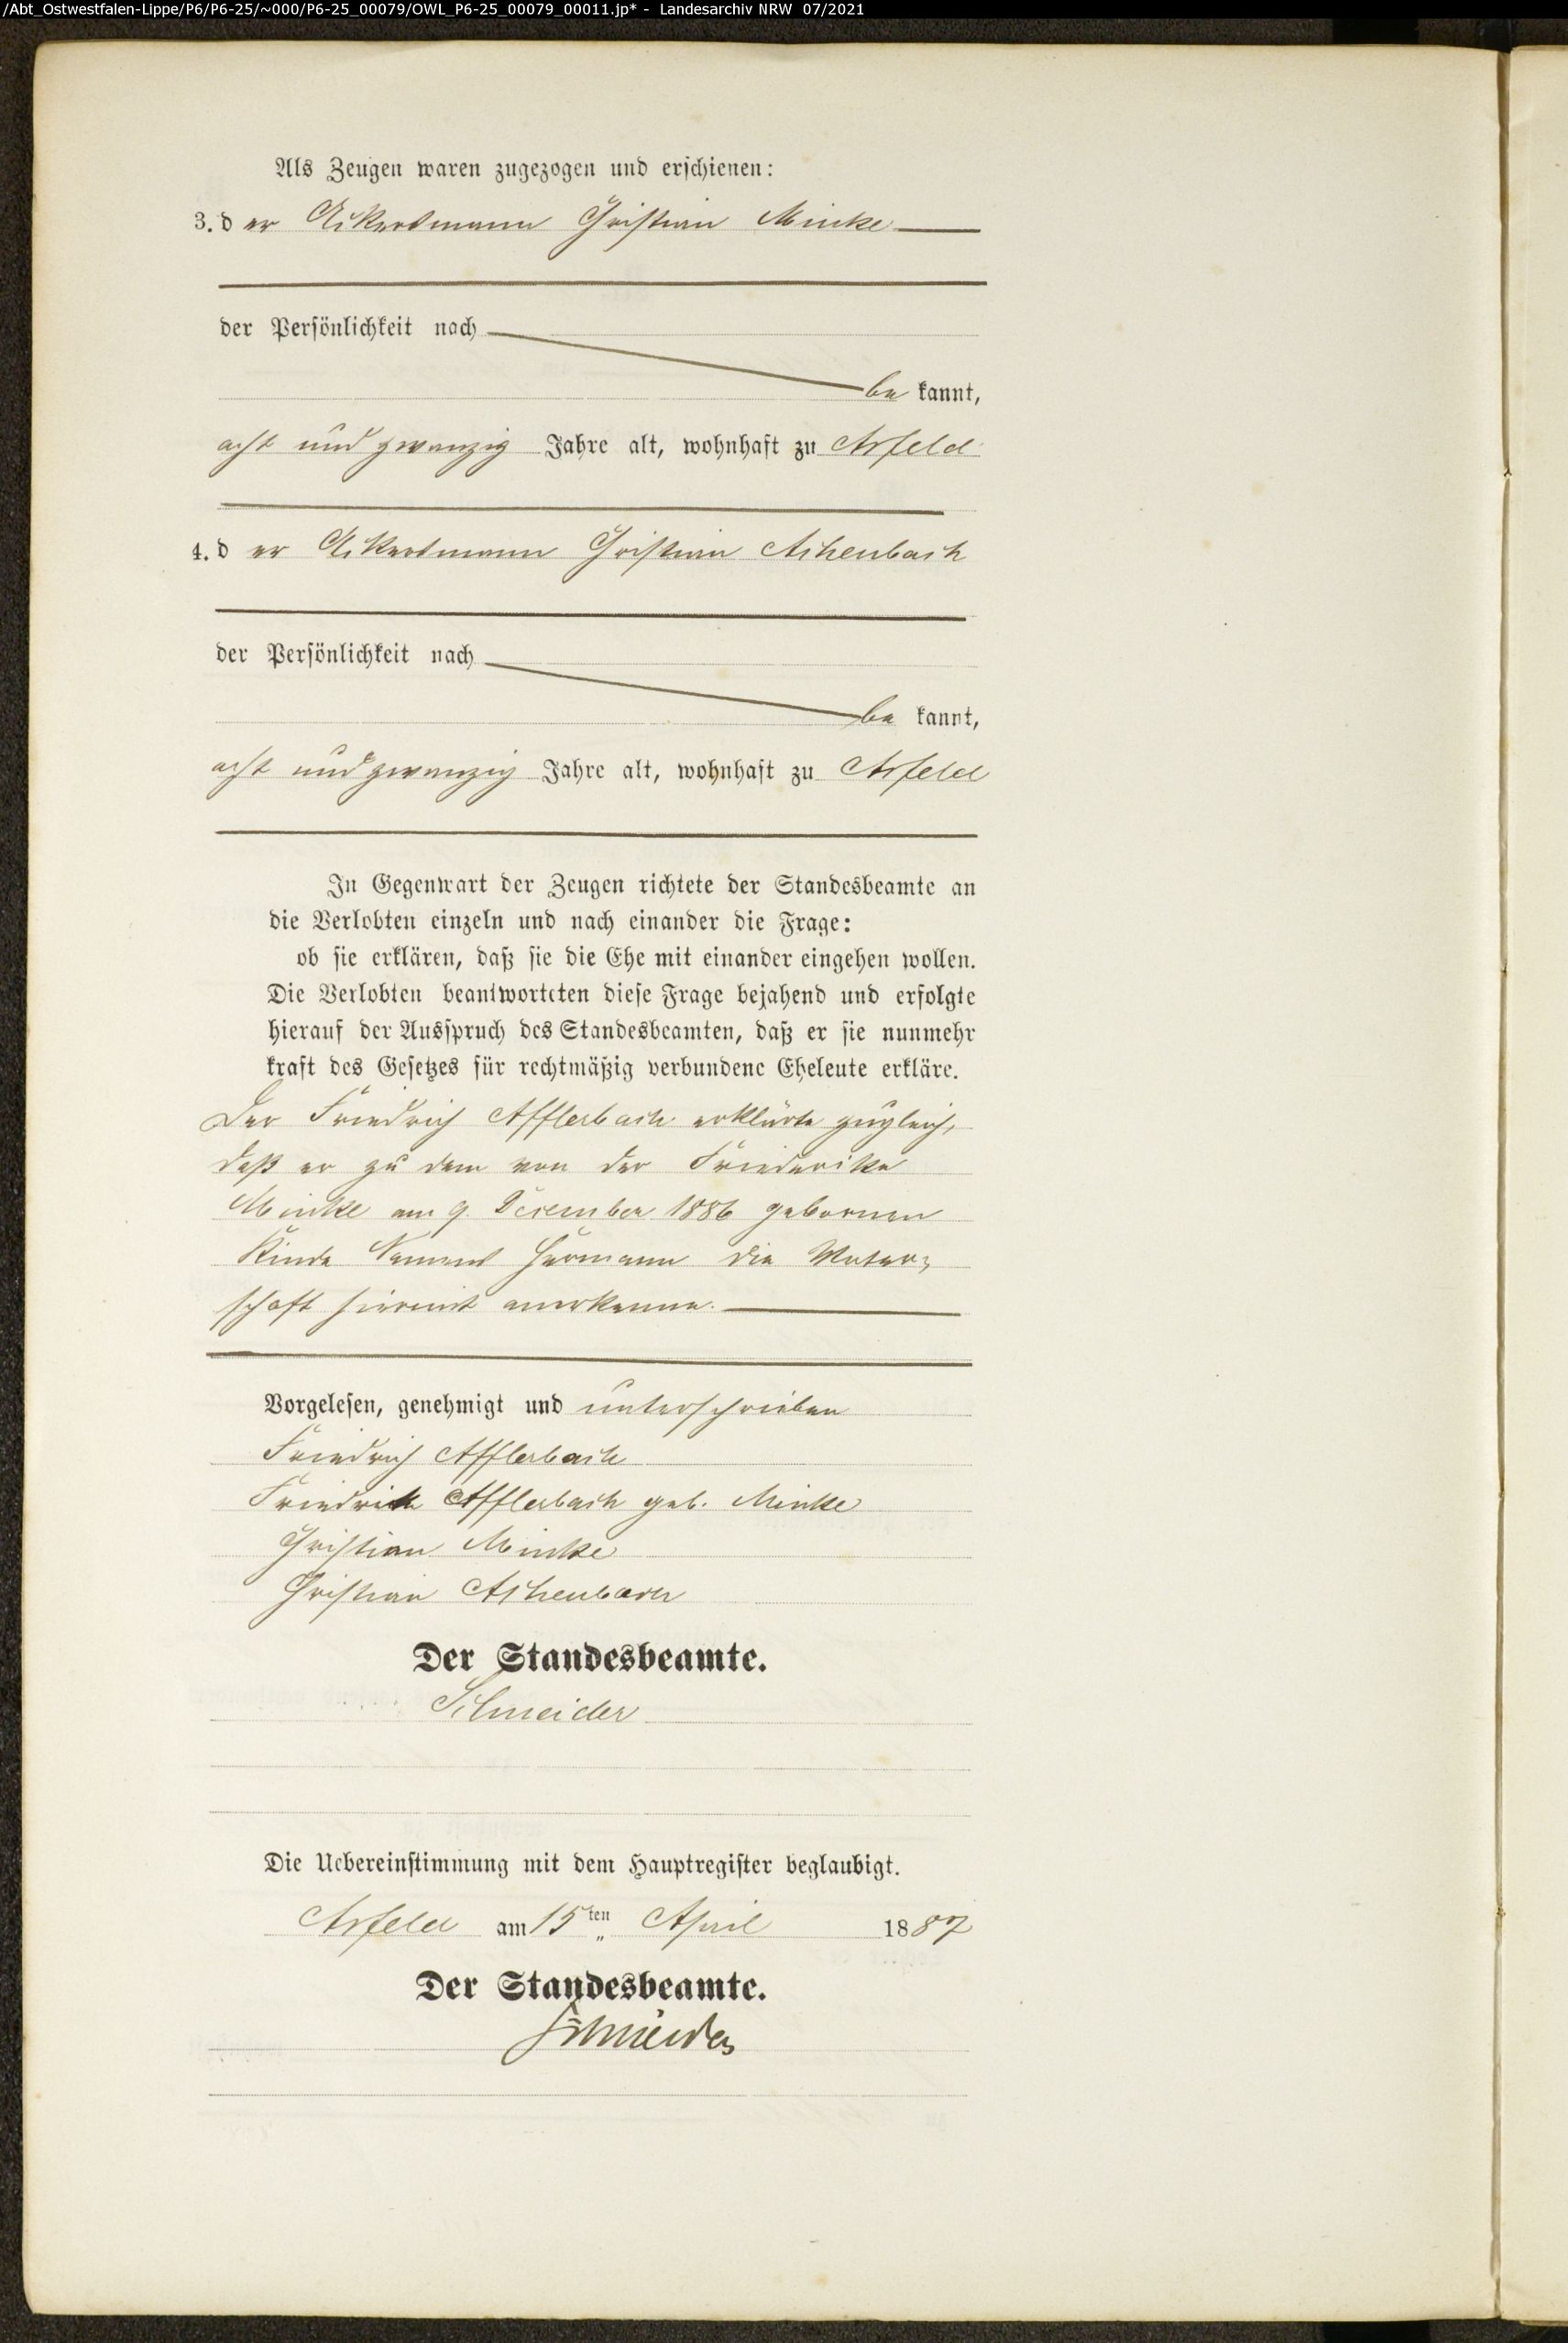 /Abt_Ostwestfalen-Lippe/P6/P6-25/~000/P6-25_00079/OWL_P6-25_00079_00011.jp* - Landesarchiv NRW 07/2021
Als Zeugen waren zugezogen und erschienen:
3. d er Ackersmann Christian Minke
der Persönlichkeit nach
be kannt,
acht und zwanzig Jahre alt, wohnhaft zu Arfeld
4. d er Ackersmann Christian Achenbach
der Persönlichkeit nach
be kannt,
acht und zwanzig Jahre alt, wohnhaft zu Arfeld
In Gegenwart der Zeugen richtete der Standesbeamte an
die Verlobten einzeln und nach einander die Frage:
ob sie erklären, daß sie die Ehe mit einander eingehen wollen.
Die Verlobten beantworteten diese Frage bejahend und erfolgte
hierauf der Ausspruch des Standesbeamten, daß er sie nunmehr
kraft des Gesetzes für rechtmäßig verbundene Eheleute erkläre.
Der Friedrich Afflerbach erklärte zugleich,
daß er zu dem von der Friederike
Minke am 9. December 1886 gebornen
Kinde Namens Hermann die Vater-
schaft hiermit anerkenne.
Vorgelesen, genehmigt und unterschrieben
Friedrich Afflerbach
Friedrike Afflerbach geb. Minke
Christian Minke
Christian Achenbach
Der Standesbeamte.
Schneider
Die Uebereinstimmung mit dem Hauptregister beglaubigt.
Arfeld am 15ten April 1887
Der Standesbeamte.
Schneider